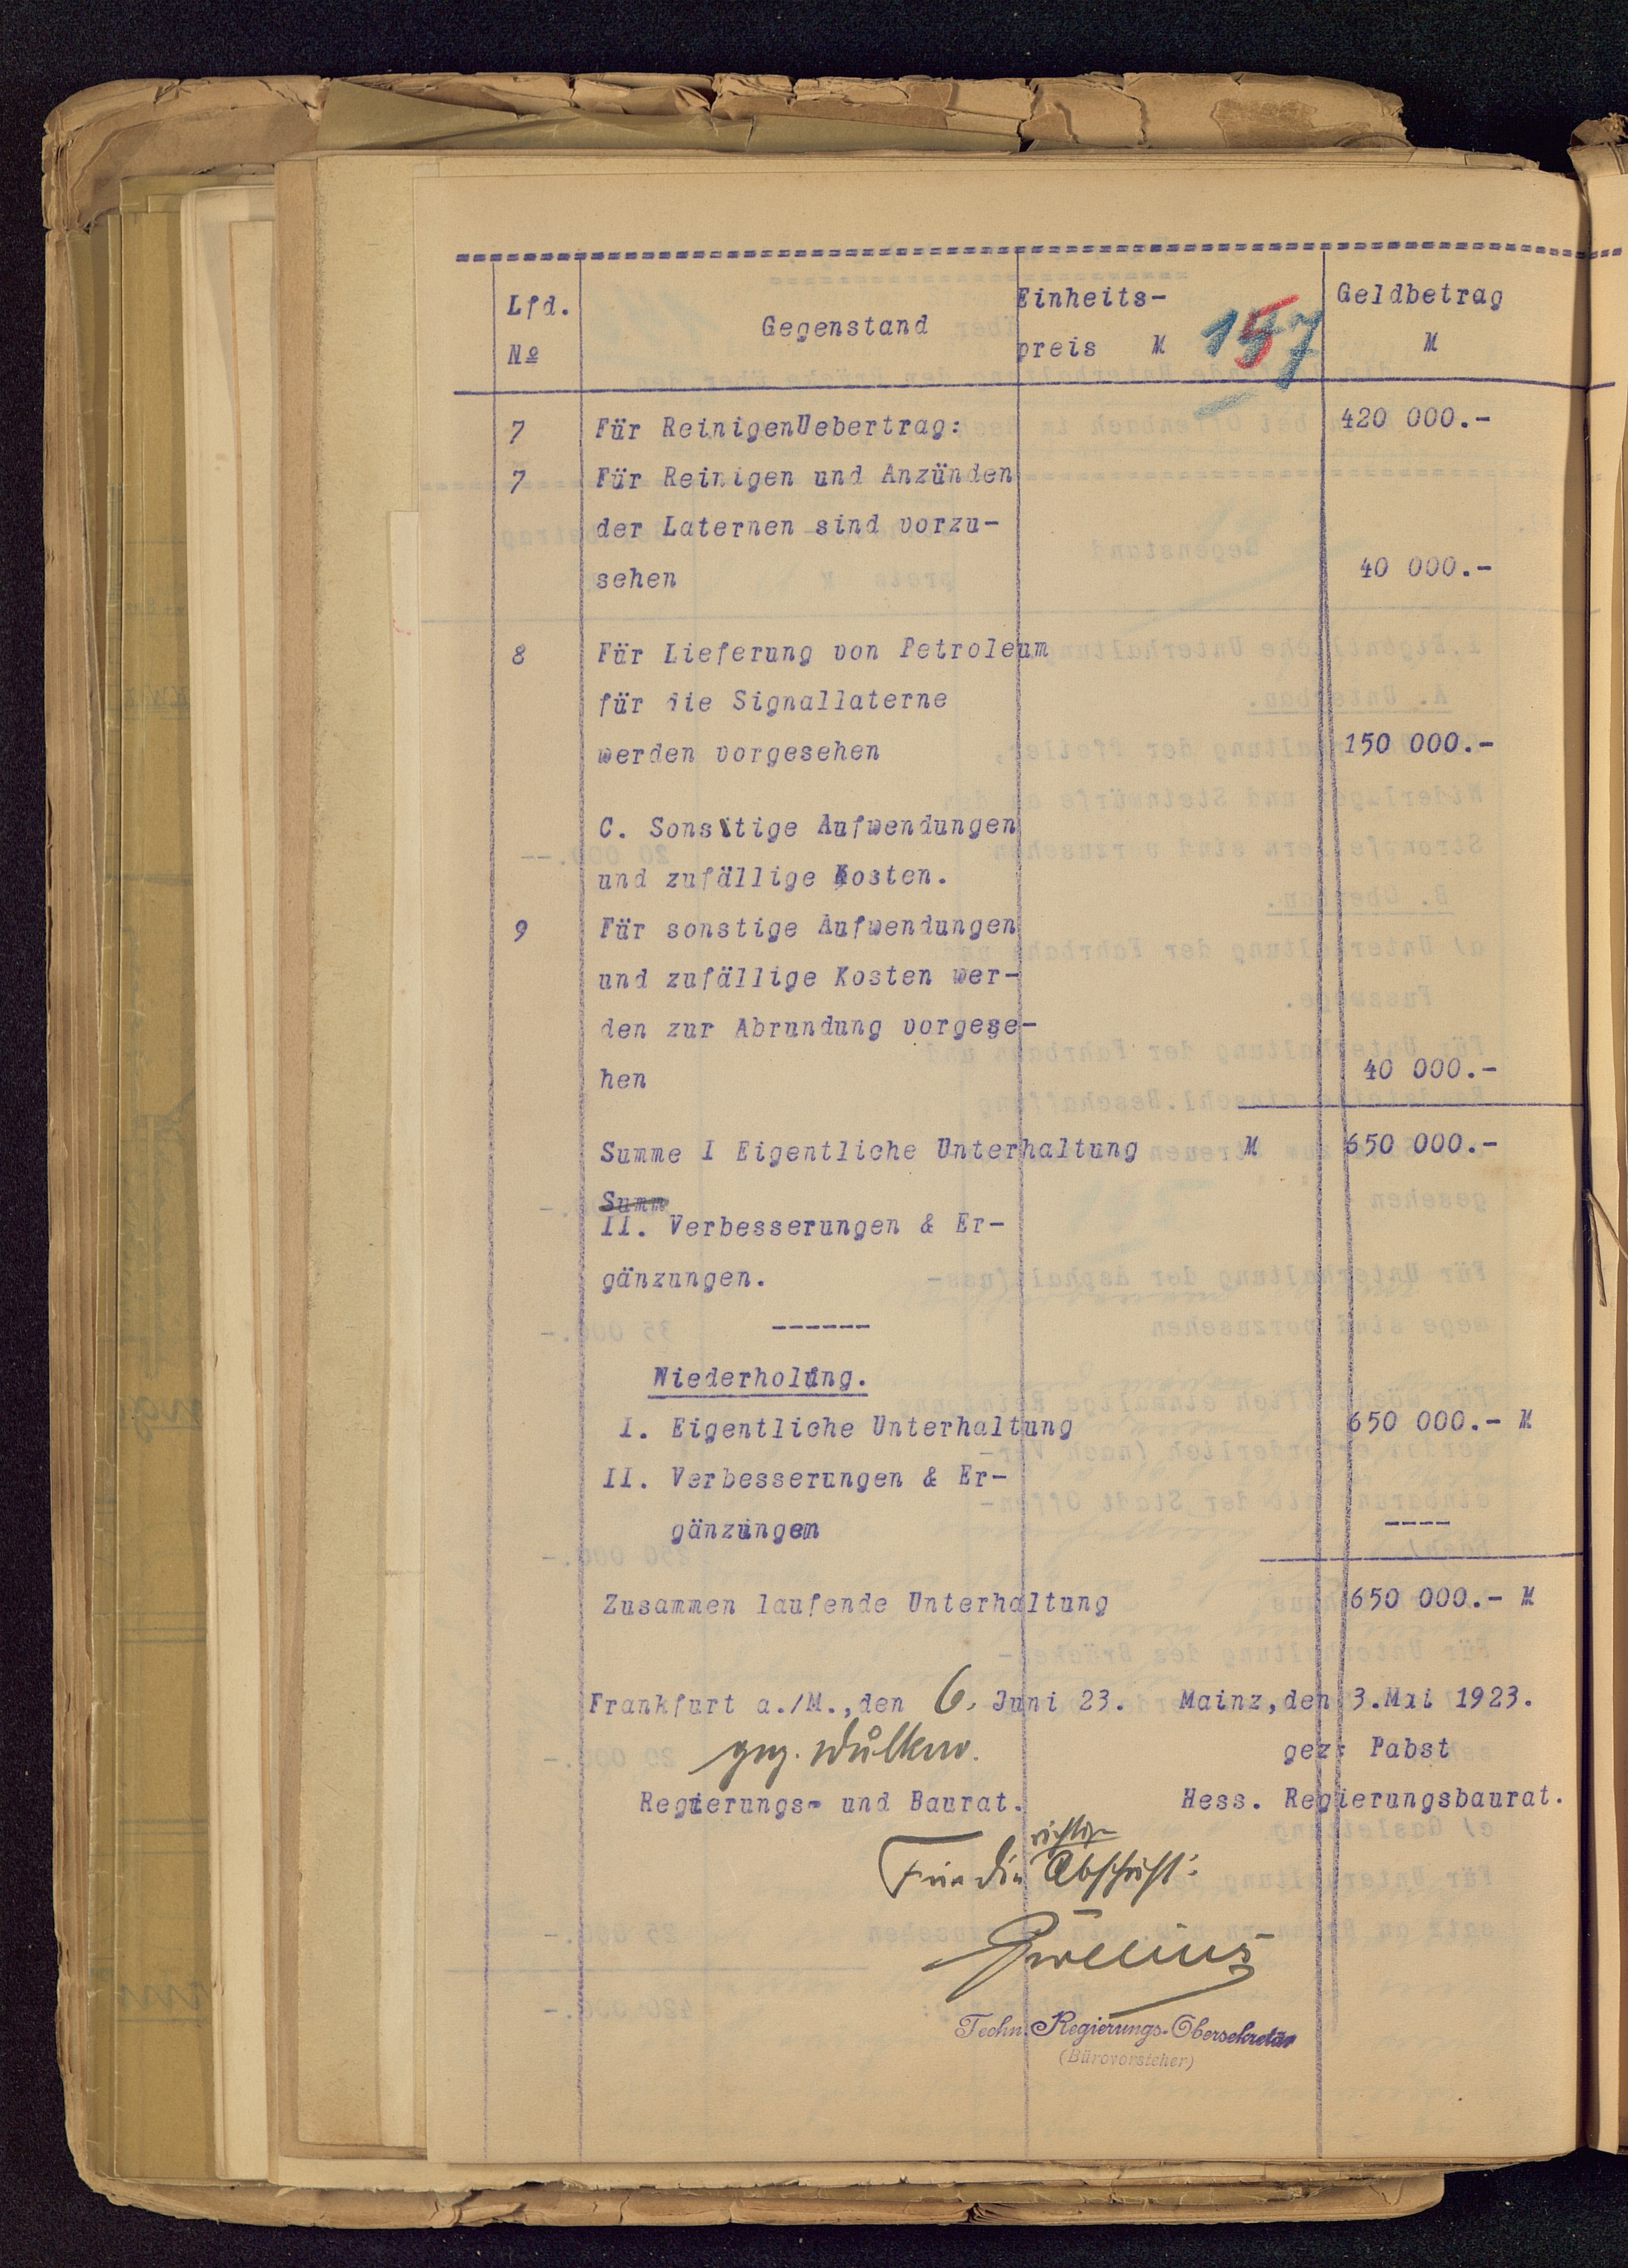 Lfd. Einheits- Geldbetrag
Gegenstand
№ preis M 157 M
7 Für ReinigenUebertrag: 420 000.-
7 Für Reinigen und Anzünden
der Laternen sind vorzu-
sehen 40 000.-
8 Für Lieferung von Petroleum
für die Signallaterne
werden vorgesehen 150 000.-
C. Sonstige Aufwendungen
und zufällige Kosten.
9 Für sonstige Aufwendungen
und zufällige Kosten wer-
den zur Abrundung vorgese-
hen 40 000.-
Summe I Eigentliche Unterhaltung M 650 000.-
Summ
II. Verbesserungen & Er-
gänzungen.
------
Wiederholung.
I. Eigentliche Unterhaltung 650 000.- M
II. Verbesserungen & Er-
gänzungen ----
Zusammen laufende Unterhaltung 650 000.- M
Frankfurt a./M.,den 6. Juni 23. Mainz,den 3.Mai 1923.
gez. gez: Pabst
Regierungs- und Baurat. Hess. Regierungsbaurat.
richtige
Für die Abschrift:
Techn. Regierungs-Obersekretär
(Bürovorsteher)